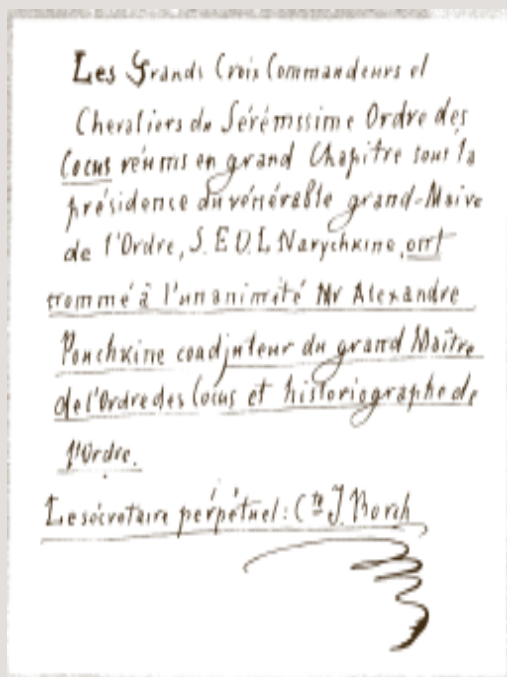 Les Grands Croix Commandeurs et
Chevaliers du Sérénissime Ordre des
Cocus réunis en grand Chapitre sous la
présidence du vénérable grand-Maive
de l'Ordre, S.E.D.L. Narychkine, ont
nommé à l'unanimité Mr Alexandre
Pouchkine coadjuteur du grand Maître
de l'Ordre des Cocus et historiographe de
l'Ordre.
Le sécrétaire perpétuel: Cte J. Borch